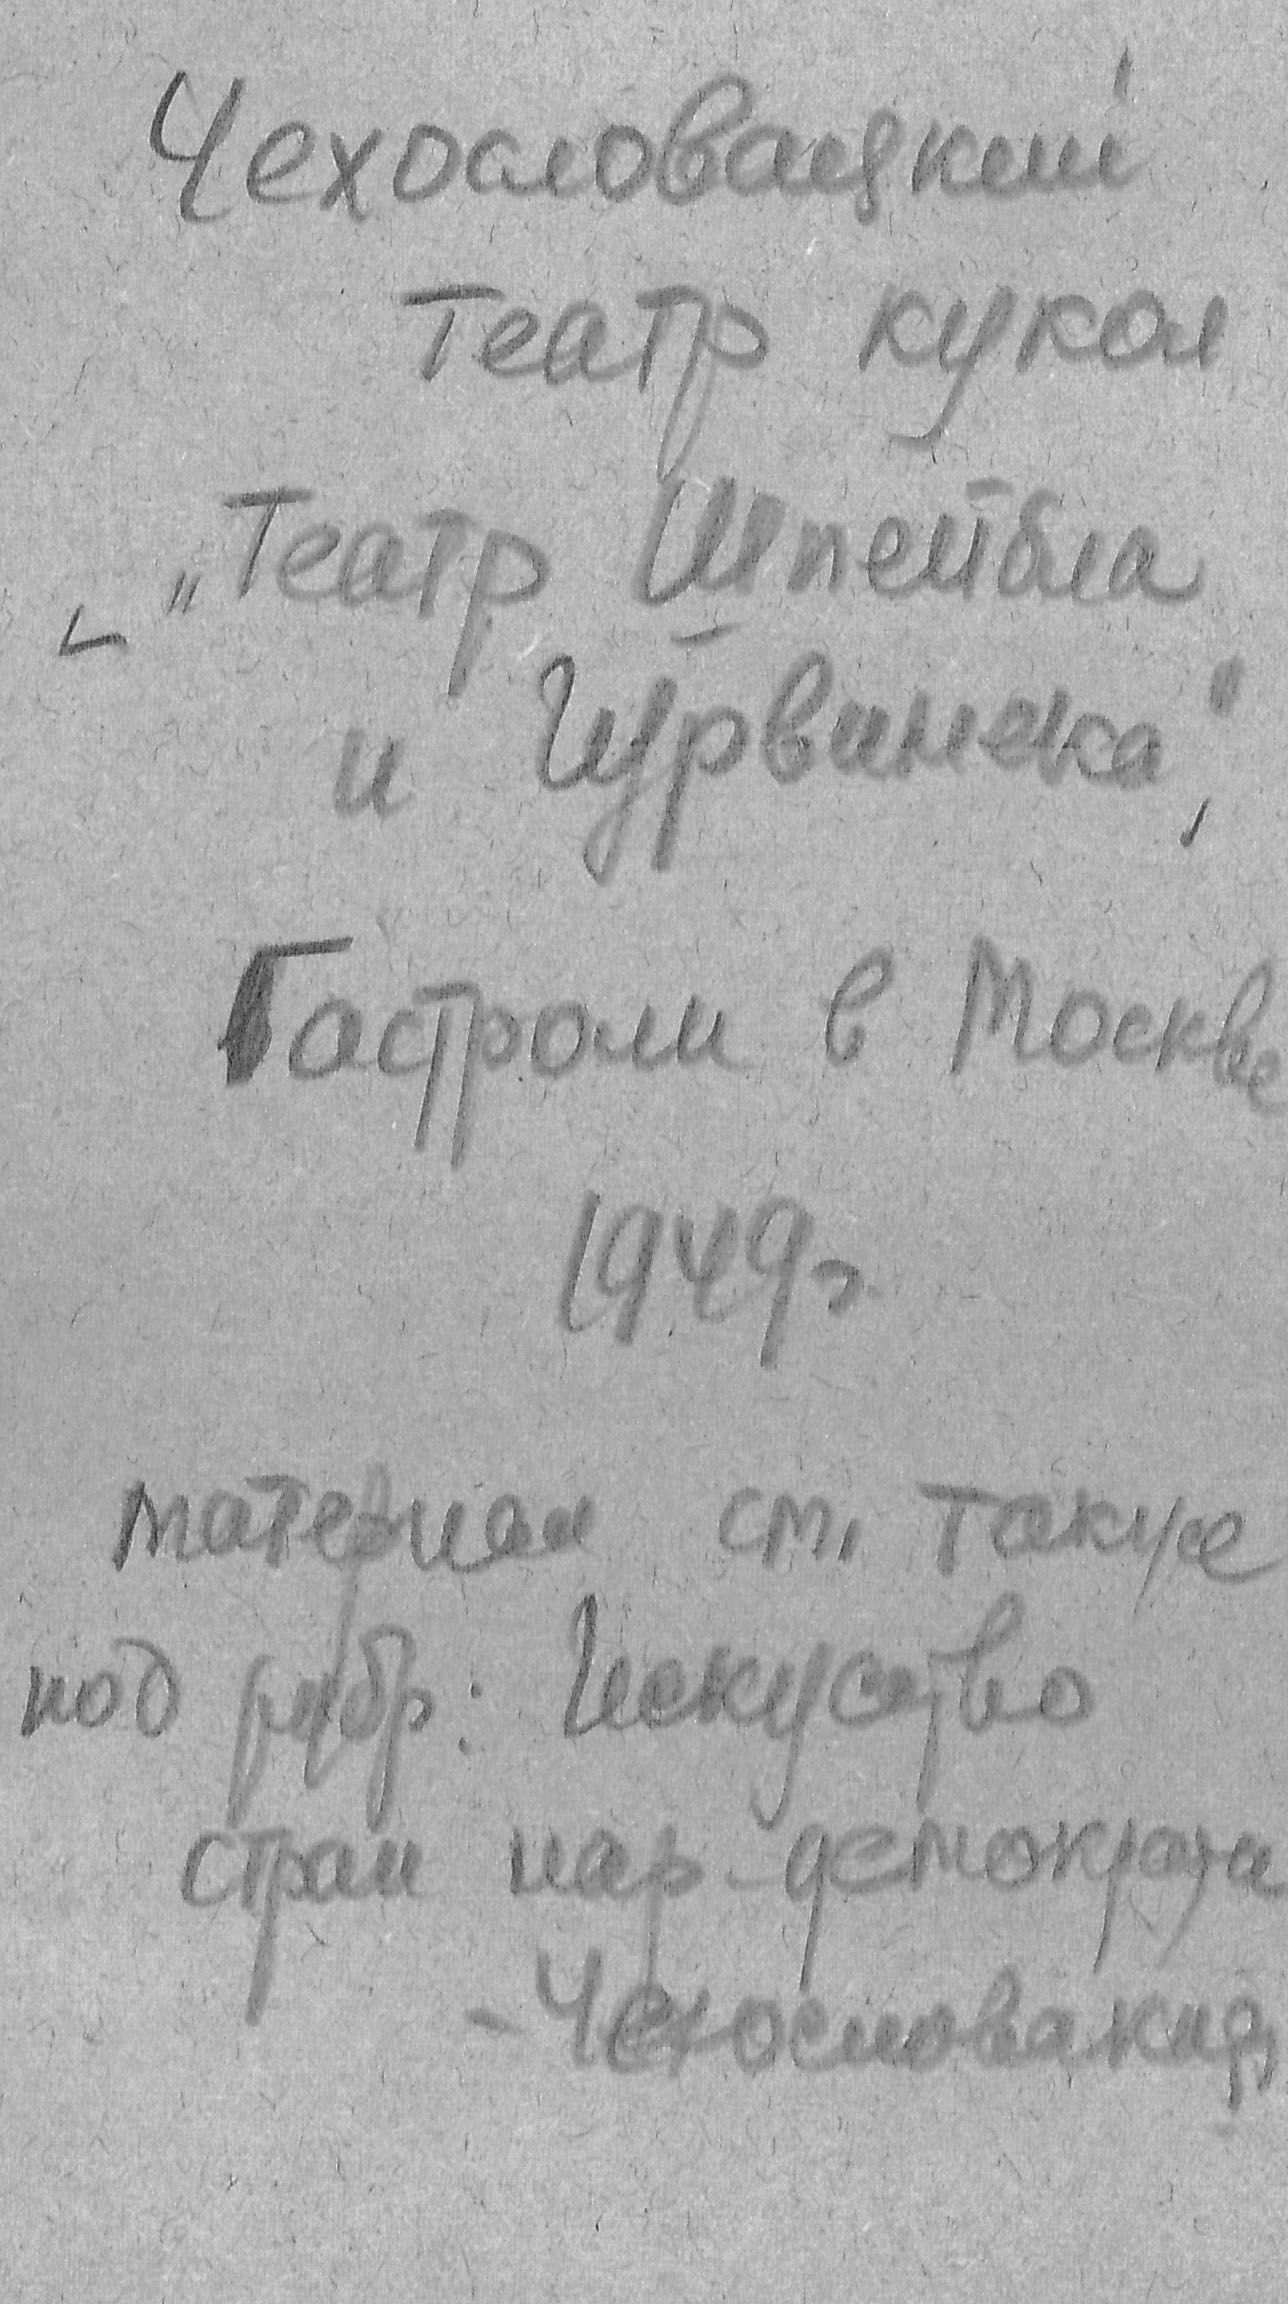 Чехословацкий
театр кукол
„Театр Шпейбла
и Гурвинека",
Гастроли в Москве
1949г.
материал см. также
под рубр: Искусство
стран нар. демократи
- Чехословакия